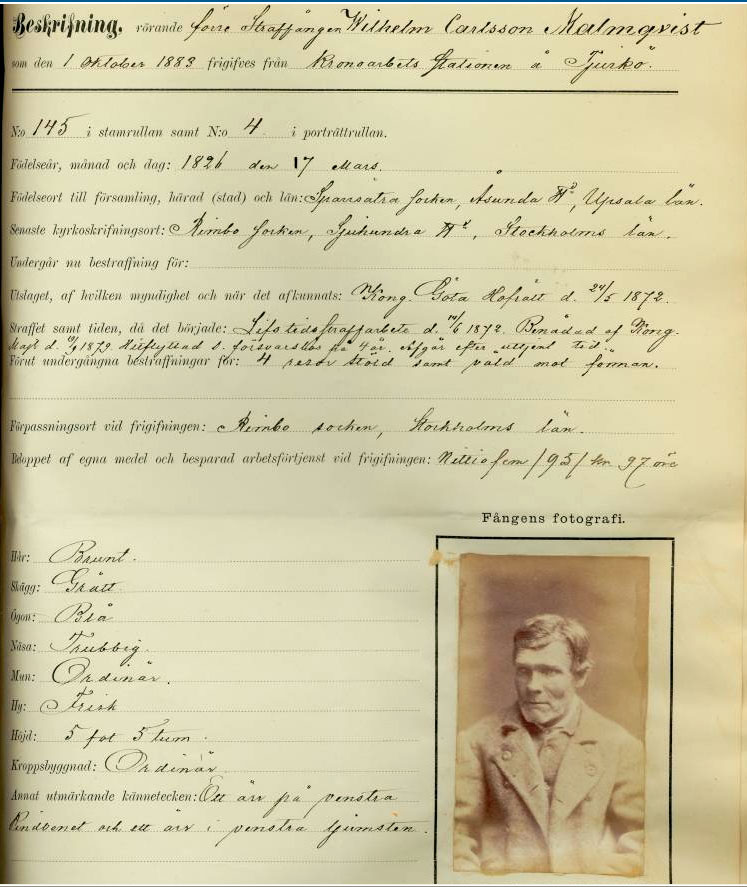 Beskrifning, rörande förre Straffången Wilhelm Carlsson Malmqvist
som den 1 Oktober 1883 frigifves från Kronoarbets Stationen å Tjurkö.
N:o 145 i stamrullan samt N:o 4 i porträttrullan.
Födelseår, månad och dag: 1826 den 17 Mars.
Födelseort till församling, härad (stad) och län: Sparrsätra socken, Åsunda Hd, Upsala län.
Senaste kyrkoskrifningsort: Rimbo socken, Sjuhundra Hd, Stockholms län.
Undergår nu bestraffning för:
Utslaget, af hvilken myndighet och när det afkunnats: Kong. Göta Hofrätt d. 24/5 1872.
Straffet samt tiden, då det började: Lifstidsstraffarbete d. 14/6 1872. Benådad af Kong.
Majt d. 1879 s. försvarslös på 4 år. Afgår efter uttjent tid.
Förut undergångna bestraffningar för: 4 resor stöld samt våld mot förman.
Förpassningsort vid frigifningen: Rimbo socken, Stockholms län.
Beloppet af egna medel och besparad arbetsförtjenst vid frigifningen: Nittiofem /95/ kr 97 öre
Fångens fotografi.
Hår: Brunt.
Skägg: Grått
Ögon: Blå
Näsa: Trubbig.
Mun: Ordinär.
Hy: Frisk
Höjd: 5 fot 5 tum.
Kroppsbyggnad: Ordinär.
Annat utmärkande kännetecken: Ett ärr på venstra
kindbenet och ett ärr i venstra ljumsken.